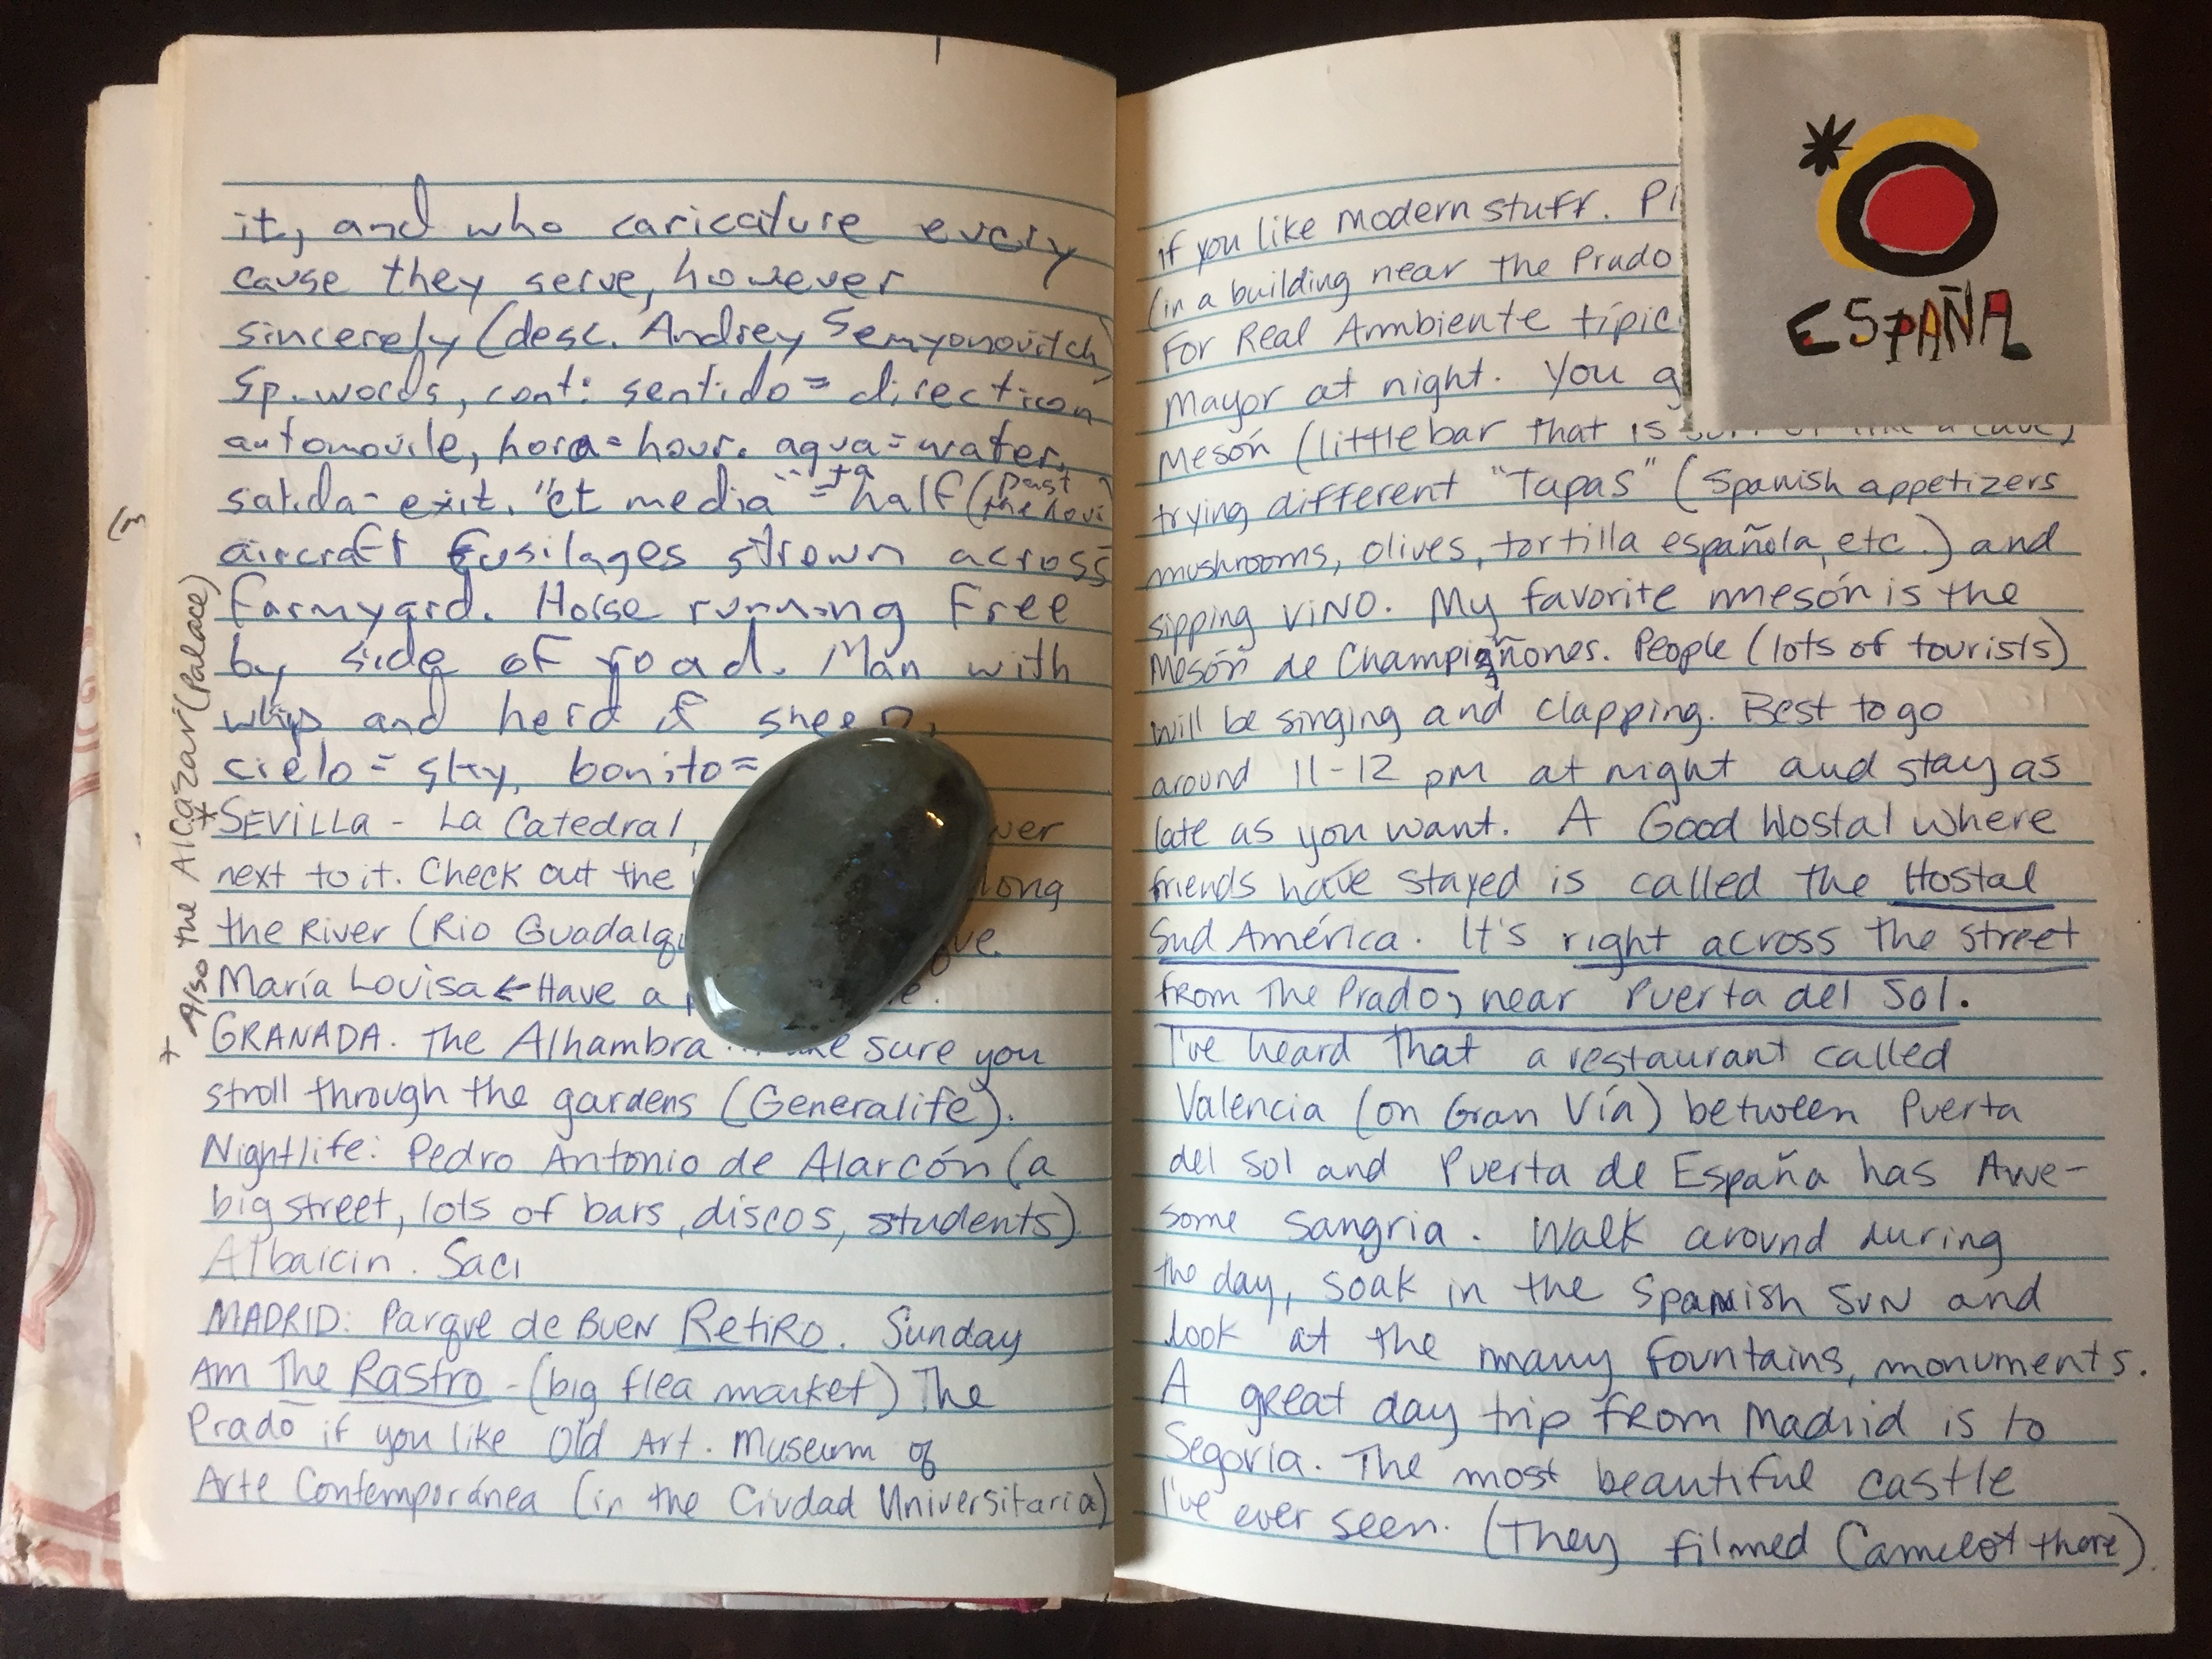 it, and who caricature every
cause they serve, however
sincerely (desc. Andrey Semyonovitch)
Sp. words, cont: sentido = direction
automovile, hora = hour. agua = water,
salida - exit. "et media" = half (past the hour)
aircraft fusilages strown across
farmyard. Horse running free
by side of road. Man with
whip and herd of sheep,
cielo = sky, bonito =
* SEVILLA - La Catedral,
next to it. Check out the long
the River (Rio Guadalqu
María Louisa ← Have a
GRANADA. The Alhambra sure you
stroll through the gardens (Generalife).
Nightlife: Pedro Antonio de Alarcón (a
big street, lots of bars, discos, students)
Albaicin. Saci
MADRID: Parque de BUEN RetiRO. Sunday
AM The Rastro - (big flea market) The
Prado if you like Old Art. Museum of
Arte Contemporánea (in the Ciudad Universitaria)
* Also the Alcazar (Palace)
if you like modern stuff. Pi
(in a building near the Prado
For Real Ambiente típic
Mayor at night. You g
Mesón (little bar that is sort of like a cave)
trying different "Tapas" (Spanish appetizers
mushrooms, olives, tortilla española, etc.) and
sipping VINO. My favorite mesón is the
Mesón de Champigñones. People (lots of tourists)
will be singing and clapping. Best to go
around 11-12 pm at night and stay as
late as you want. A Good Hostal where
friends have stayed is called the Hostal
Sud América. It's right across the street
from The Prado, near Puerta del Sol.
I've heard that a restaurant called
Valencia (on Gran Vía) between Puerta
del Sol and Puerta de España has Awe-
some Sangria. Walk around during
the day, soak in the Spanish SUN and
look at the many fountains, monuments.
A great day trip from Madrid is to
Segovia. The most beautiful castle
I've ever seen. (They filmed Camelot there).
ESPAÑA